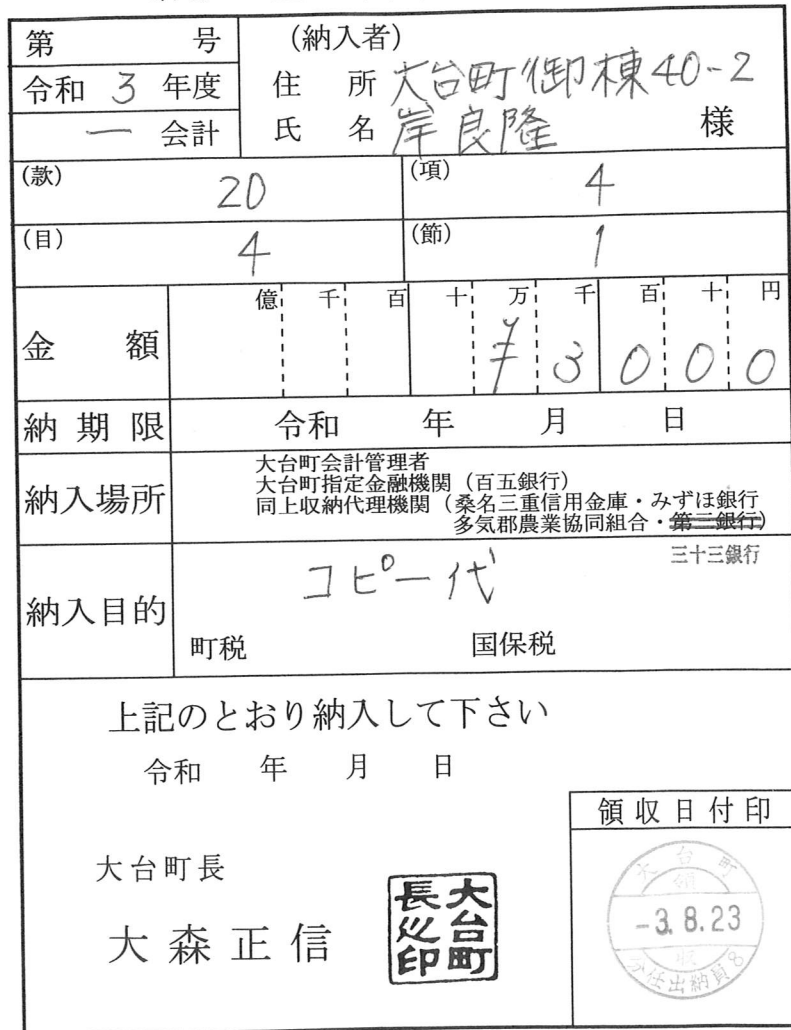 第 号
令和 3 年度
一 会計
(納入者)
住 所 大台町御棟40-2
氏 名 岸良隆 様
(款) 20
(項) 4
(目) 4
(節) 1
金 額
億 千 百 十 万 千 百 十 円
¥ 3 0 0 0
納期限 令和 年 月 日
納入場所
大台町会計管理者
大台町指定金融機関(百五銀行)
同上収納代理機関(桑名三重信用金庫・みずほ銀行
多気郡農業協同組合・第三銀行)
三十三銀行
納入目的
コピー代
町税 国保税
上記のとおり納入して下さい
令和 年 月 日
大台町長
大森正信
大台町
長之印
領収日付印
大台町
領
-3.8.23
収
分任出納員8